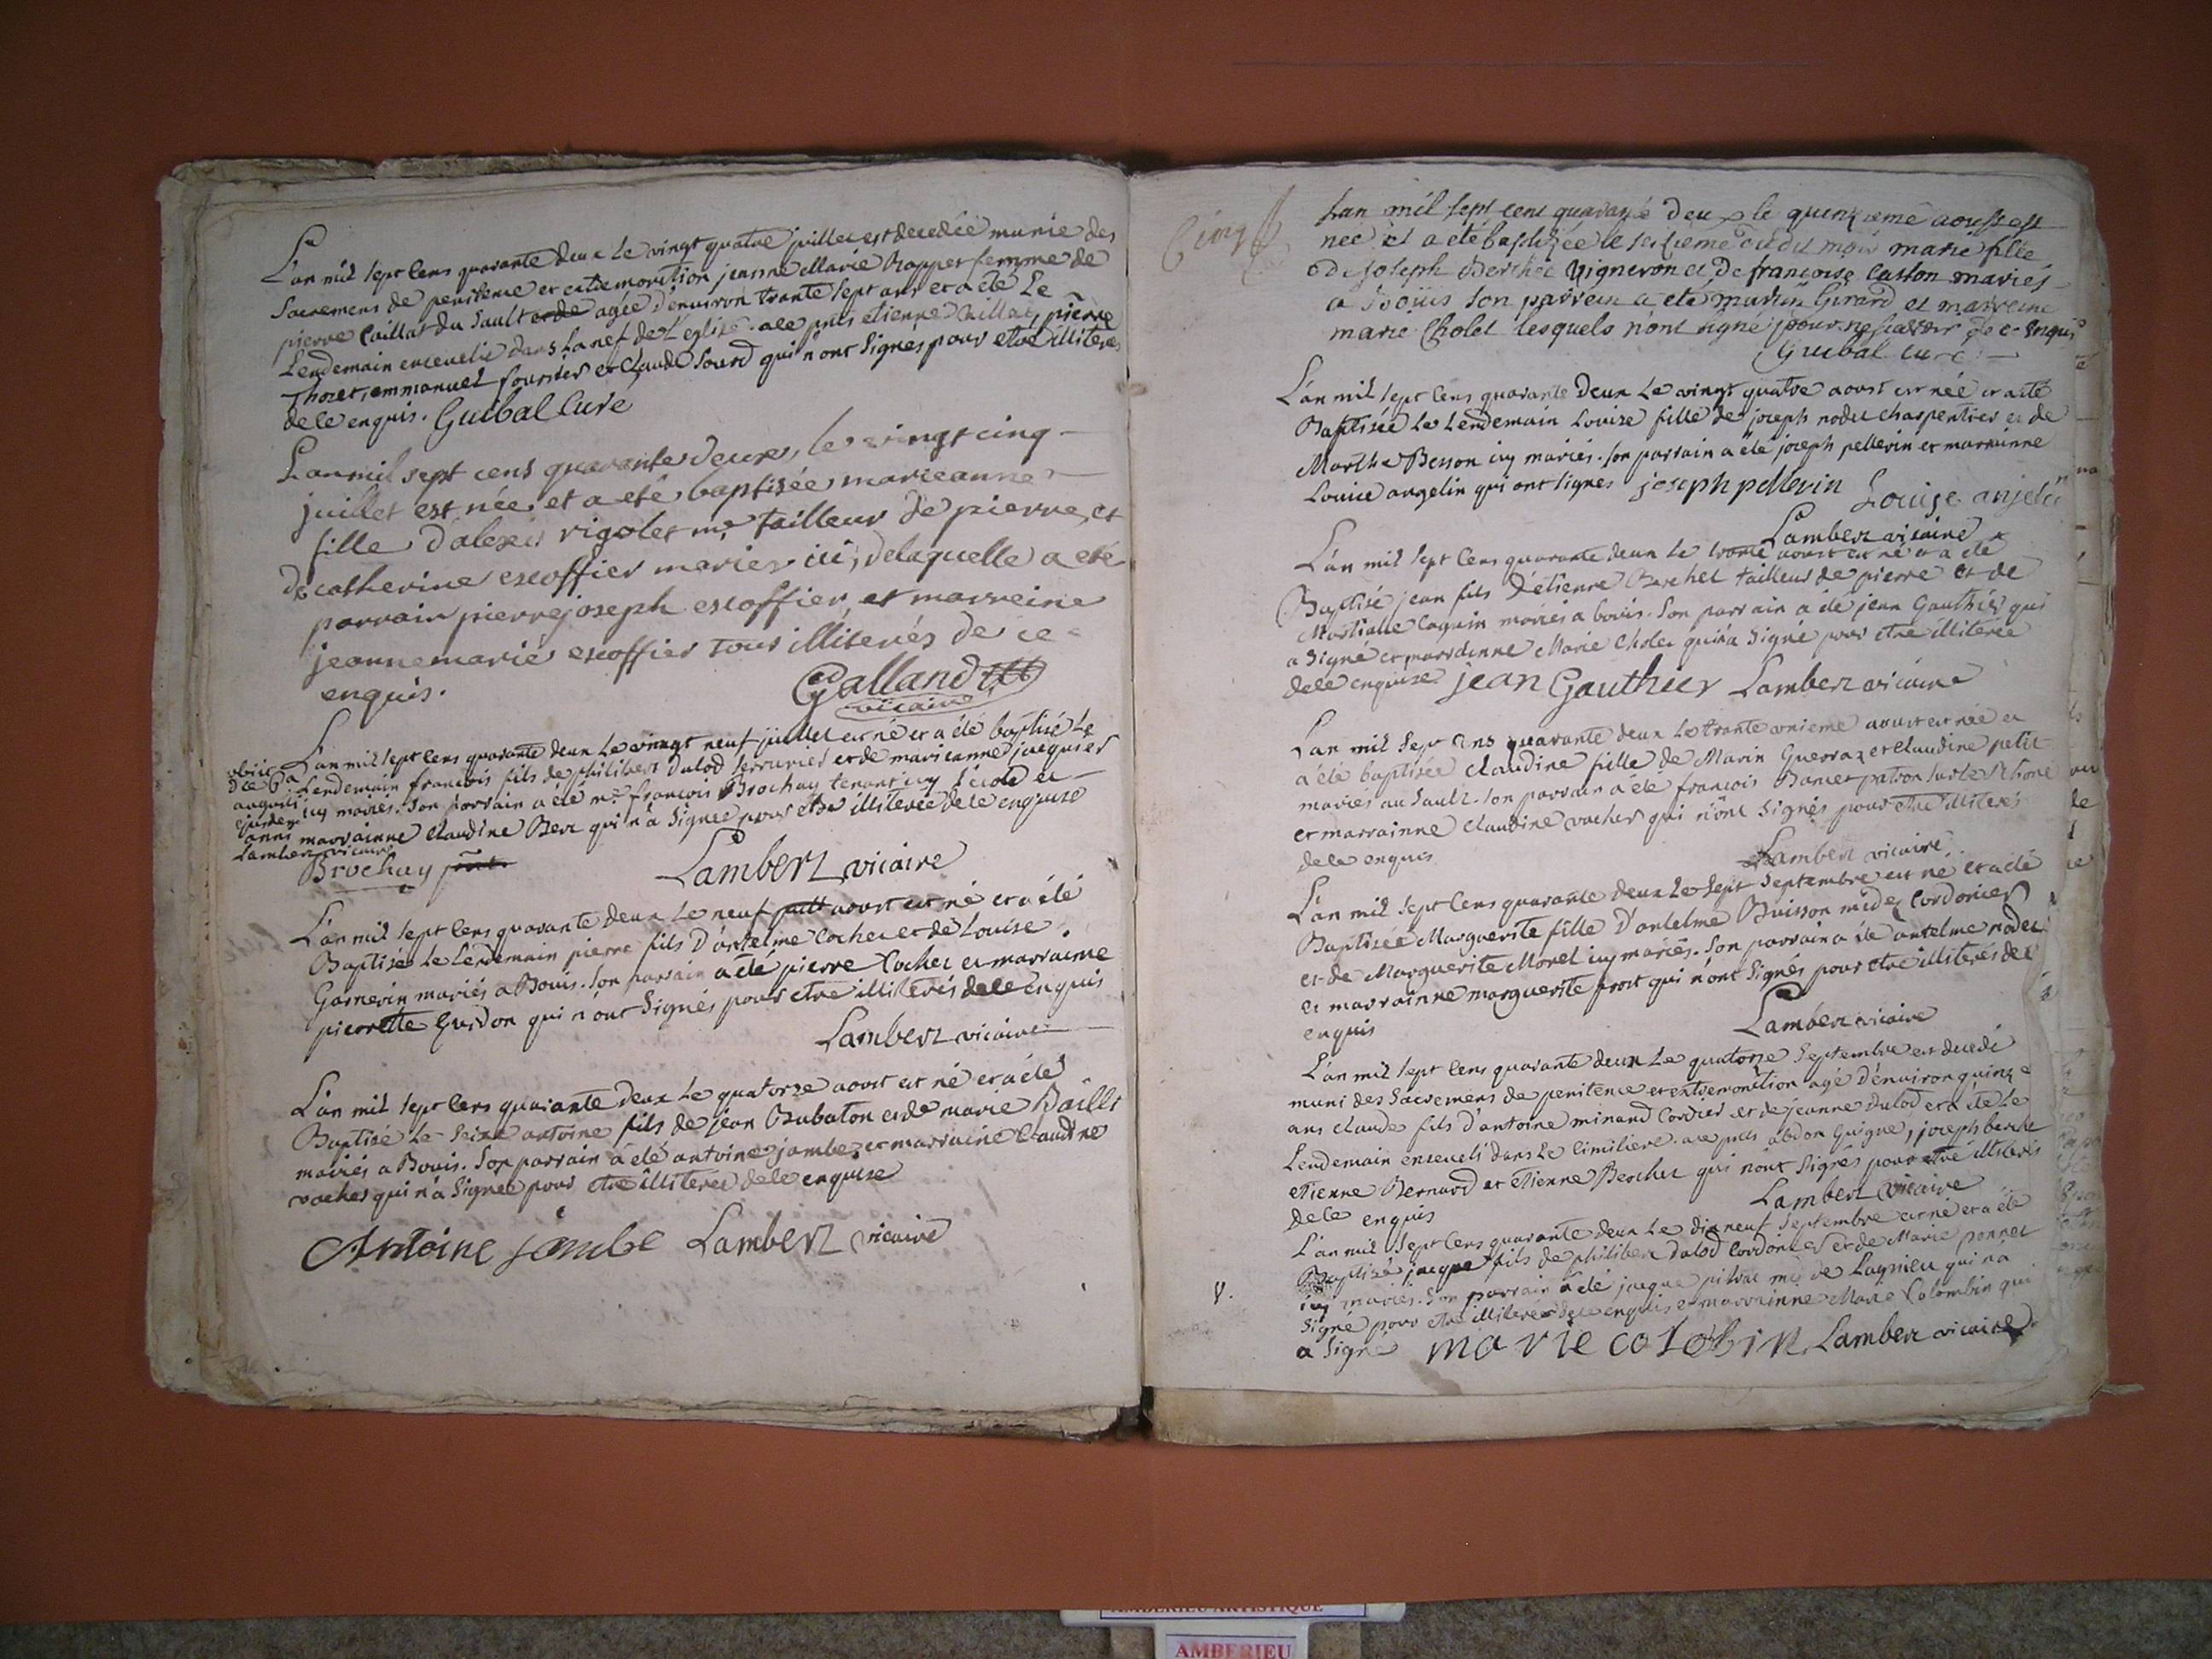 L'an mil sept cens quarante deux le vingt quatre juillet est decedée munie des
Sacremens de penitence et extremonction jeanne Marie Rappet femme de
pierre Caillat du Sault agée d'environ trante sept ans et a été Le
Lendemain encevelie dans la nef de L'eglise. a ce prés etienne Caillat, pierre
Thozet, emmanuel fournier et Claude Sourd qui n'ont Signés pour etre illiterés
de ce enquis. Guibal Curé
L'an mil sept cens quarante deux, le vingt cinq
juillet est née et a eté baptisée marieanne
fille d'alexis rigolet me tailleur de pierre, et
De catherine escoffier mariez ici, de laquelle a eté
parrain pierre joseph escoffier, et marreine
jeanne marie escoffier tous illiterés de ce
enquis.
Galland
vicaire
L'an mil sept cens quarante deux Le vingt neuf juillet est né et a été baptisé Le
Lendemain francois fils de philibert Dulod serrurier et de marieanne jacquier
icy mariés. Son parrain a été me francois Brochay tenant icy L'ecole et
marrainne Claudine Berr qui n'a Signee pour etre illiterée de ce enquise
obiit
die 6a
augusti
ejusdem
anni
Lambert vicaire
Brochay
Lambert vicaire
L'an mil sept cens quarante deux Le neuf aoust est né et a été
Baptisé Le Lendemain pierre fils D'antelme Cochet et de Louise
Garnerin mariés a Bouis. Son parrain a été pierre Cochet et marrainne
pierrette Guidon qui n'ont Signés pour etre illiterés de ce enquis
Lambert vicaire
L'an mil sept cens quarante deux Le quatorze aoust est né et a été
Baptisé Le Seize antoine fils de jean Babaton et de marie Bailli
mariés a Bouis. Son parrain a été antoine jambe, et marraine Claudine
vacher qui n'a Signee pour etre illiteree de ce enquise
Antoine jambe Lambert vicaire
Cinq
Lan mil sept cent quarante deux le quinzieme aoust est
née et a eté baptizée le seizieme dudit mois marie fille
de Joseph Berchet Vigneron et de francoise Caston mariés
a Boüis son parrein a eté martin Girard et marreine
marie Cholet lesquels n'ont signé pour ne scavoir de ce enquis
Guibal curé
L'an mil sept cens quarante Deux Le vingt quatre aoust est née et a été
Baptisée Le Lendemain Louise fille de joseph nodet charpentier et de
Marthe Besson icy mariés. Son parrain a été joseph pellerin et marrainne
Louise angelin qui ont signes joseph pellerin Louise anjelin
Lambert vicaire
L'an mil sept cens quarante deux Le trante aoust est né et a été
Baptisé jean fils D'étienne Berchet tailleur de pierre et de
Coquin mariés a bouis. Son parrain a été jean Gauthier qui
a Signé et marrainne Marie Cholet qui n'a Signé pour etre illiterée
de ce enquise jean Gauthier Lambert vicaire
L'an mil Sept Cens quarante deux Le trante unieme aoust est née et
a été baptisée Claudine fille de Marin Guerraz et Claudine petit
mariés au Sault. Son parrain a été francois Banet patron sur le Rhone
et marrainne Claudine vacher qui n'ont Signés pour etre illiterés
de ce enquis
Lambert vicaire
L'an mil Sept cens quarante deux Le Sept Septembre est né et a été
Baptisée Marguerite fille D'antelme Buisson me Cordonier
et de Marguerite Morel icy mariés. Son parrain a été antelme nodet
et marrainne marguerite prost qui n'ont Signés pour etre illiterés de ce
enquis
Lambert vicaire
L'an mil sept cens quarante deux Le quatorze Septembre est decedé
muni des Sacremens de penitence et extremonction agé D'environ quinze
ans Claude fils d'antoine minand Cordier et de jeanne Dulod et a été Le
Lendemain enceveli dans Le Cimitiere. a ce prés abdon Guigue, joseph berche
etienne Bernard et etienne Berchet qui n'ont Signés pour etre illiterés
de ce enquis
Lambert Vicaire
L'an mil Sept Cens quarante deux Le dixneuf Septembre est né et a été
Baptisé jacque fils de philibert Dulod Cordonier et de Marie ponnet
icy mariés. Son parrain a été jacque pitrat me de Lagnieu qui n'a
Signé pour etre illiteré de ce enquis et marrainne Marie Colombin qui
a Signé marie colobin Lambert vicaire
8.
AMBERIEU ARTISTIQUE
AMBERIEU